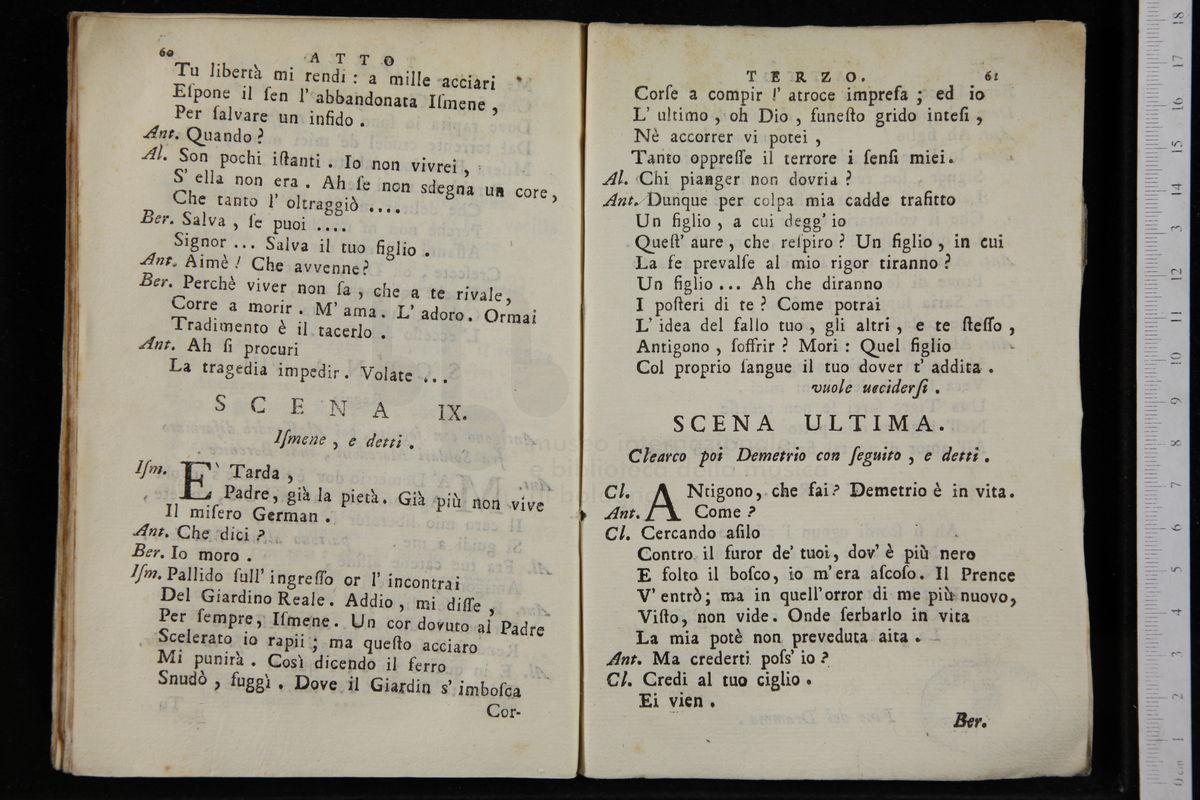 60
ATTO
Tu libertà mi rendi : a mille acciari
Eſpone il ſen l' abbandonata Iſmene ,
Per ſalvare un infido .
Ant. Quando ?
Al. Son pochi iſtanti . Io non vivrei ,
S' ella non era . Ah ſe non sdegna un core ,
Che tanto l' oltraggiò ....
Ber. Salva , ſe puoi ....
Signor ... Salva il tuo figlio .
Ant. Aimè ! Che avvenne ?
Ber. Perchè viver non ſa , che a te rivale ,
Corre a morir . M' ama . L' adoro . Ormai
Tradimento è il tacerlo .
Ant. Ah ſi procuri
La tragedia impedir . Volate ...
SCENA IX.
Iſmene , e detti .
Iſm. E' Tarda ,
Padre , già la pietà . Già più non vive
Il miſero German .
Ant. Che dici ?
Ber. Io moro .
Iſm. Pallido ſull' ingreſſo or l' incontrai
Del Giardino Reale . Addio , mi diſſe ,
Per ſempre , Iſmene . Un cor dovuto al Padre
Scelerato io rapii ; ma queſto acciaro
Mi punirà . Così dicendo il ferro
Snudò , fuggì . Dove il Giardin s' imboſca
Cor-
TERZO.
61
Corſe a compir l' atroce impreſa ; ed io
L' ultimo , oh Dio , funeſto grido inteſi ,
Nè accorrer vi potei ,
Tanto oppreſſe il terrore i ſenſi miei .
Al. Chi pianger non dovria ?
Ant. Dunque per colpa mia cadde trafitto
Un figlio , a cui degg' io
Queſt' aure , che reſpiro ? Un figlio , in cui
La fe prevalſe al mio rigor tiranno ?
Un figlio ... Ah che diranno
I poſteri di te ? Come potrai
L' idea del fallo tuo , gli altri , e te ſteſſo ,
Antigono , ſoffrir ? Mori : Quel figlio
Col proprio ſangue il tuo dover t' addita .
vuole ucciderſi .
SCENA ULTIMA.
Clearco poi Demetrio con ſeguito , e detti .
Cl. ANtigono, che fai ? Demetrio è in vita .
Ant. Come ?
Cl. Cercando aſilo
Contro il furor de' tuoi , dov' è più nero
E folto il boſco , io m' era aſcoſo . Il Prence
V' entrò ; ma in quell' orror di me più nuovo ,
Viſto , non vide . Onde ſerbarlo in vita
La mia potè non preveduta aita .
Ant. Ma crederti poſs' io ?
Cl. Credi al tuo ciglio .
Ei vien .
Ber.
museo internazionale
e biblioteca della musica
di bologna
0 cm 1 2 3 4 5 6 7 8 9 10 11 12 13 14 15 16 17 18